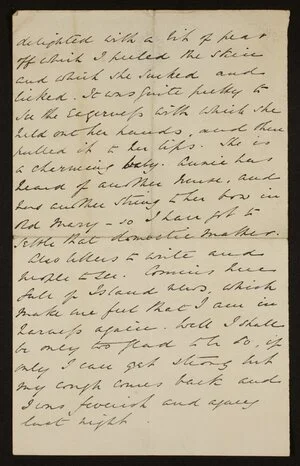 delighted with a bit of pear
off which I peeled the skin
and which she sucked and
licked. It was quite pretty to
see the eagerness with which she
held out her hands, and then
pulled it to her lips. She is
a charming baby. Annie has
heard of another nurse, and
has another string to her bow in
old Mary - so I have got to
settle that domestic matter.
Also letters to write and
people to see. Comins here
full of Island news, which
make me feel that I am in
harness again. Well I shall
be only too glad to be so, if
only I can get strong but
my cough comes back and
I was feverish and
last night